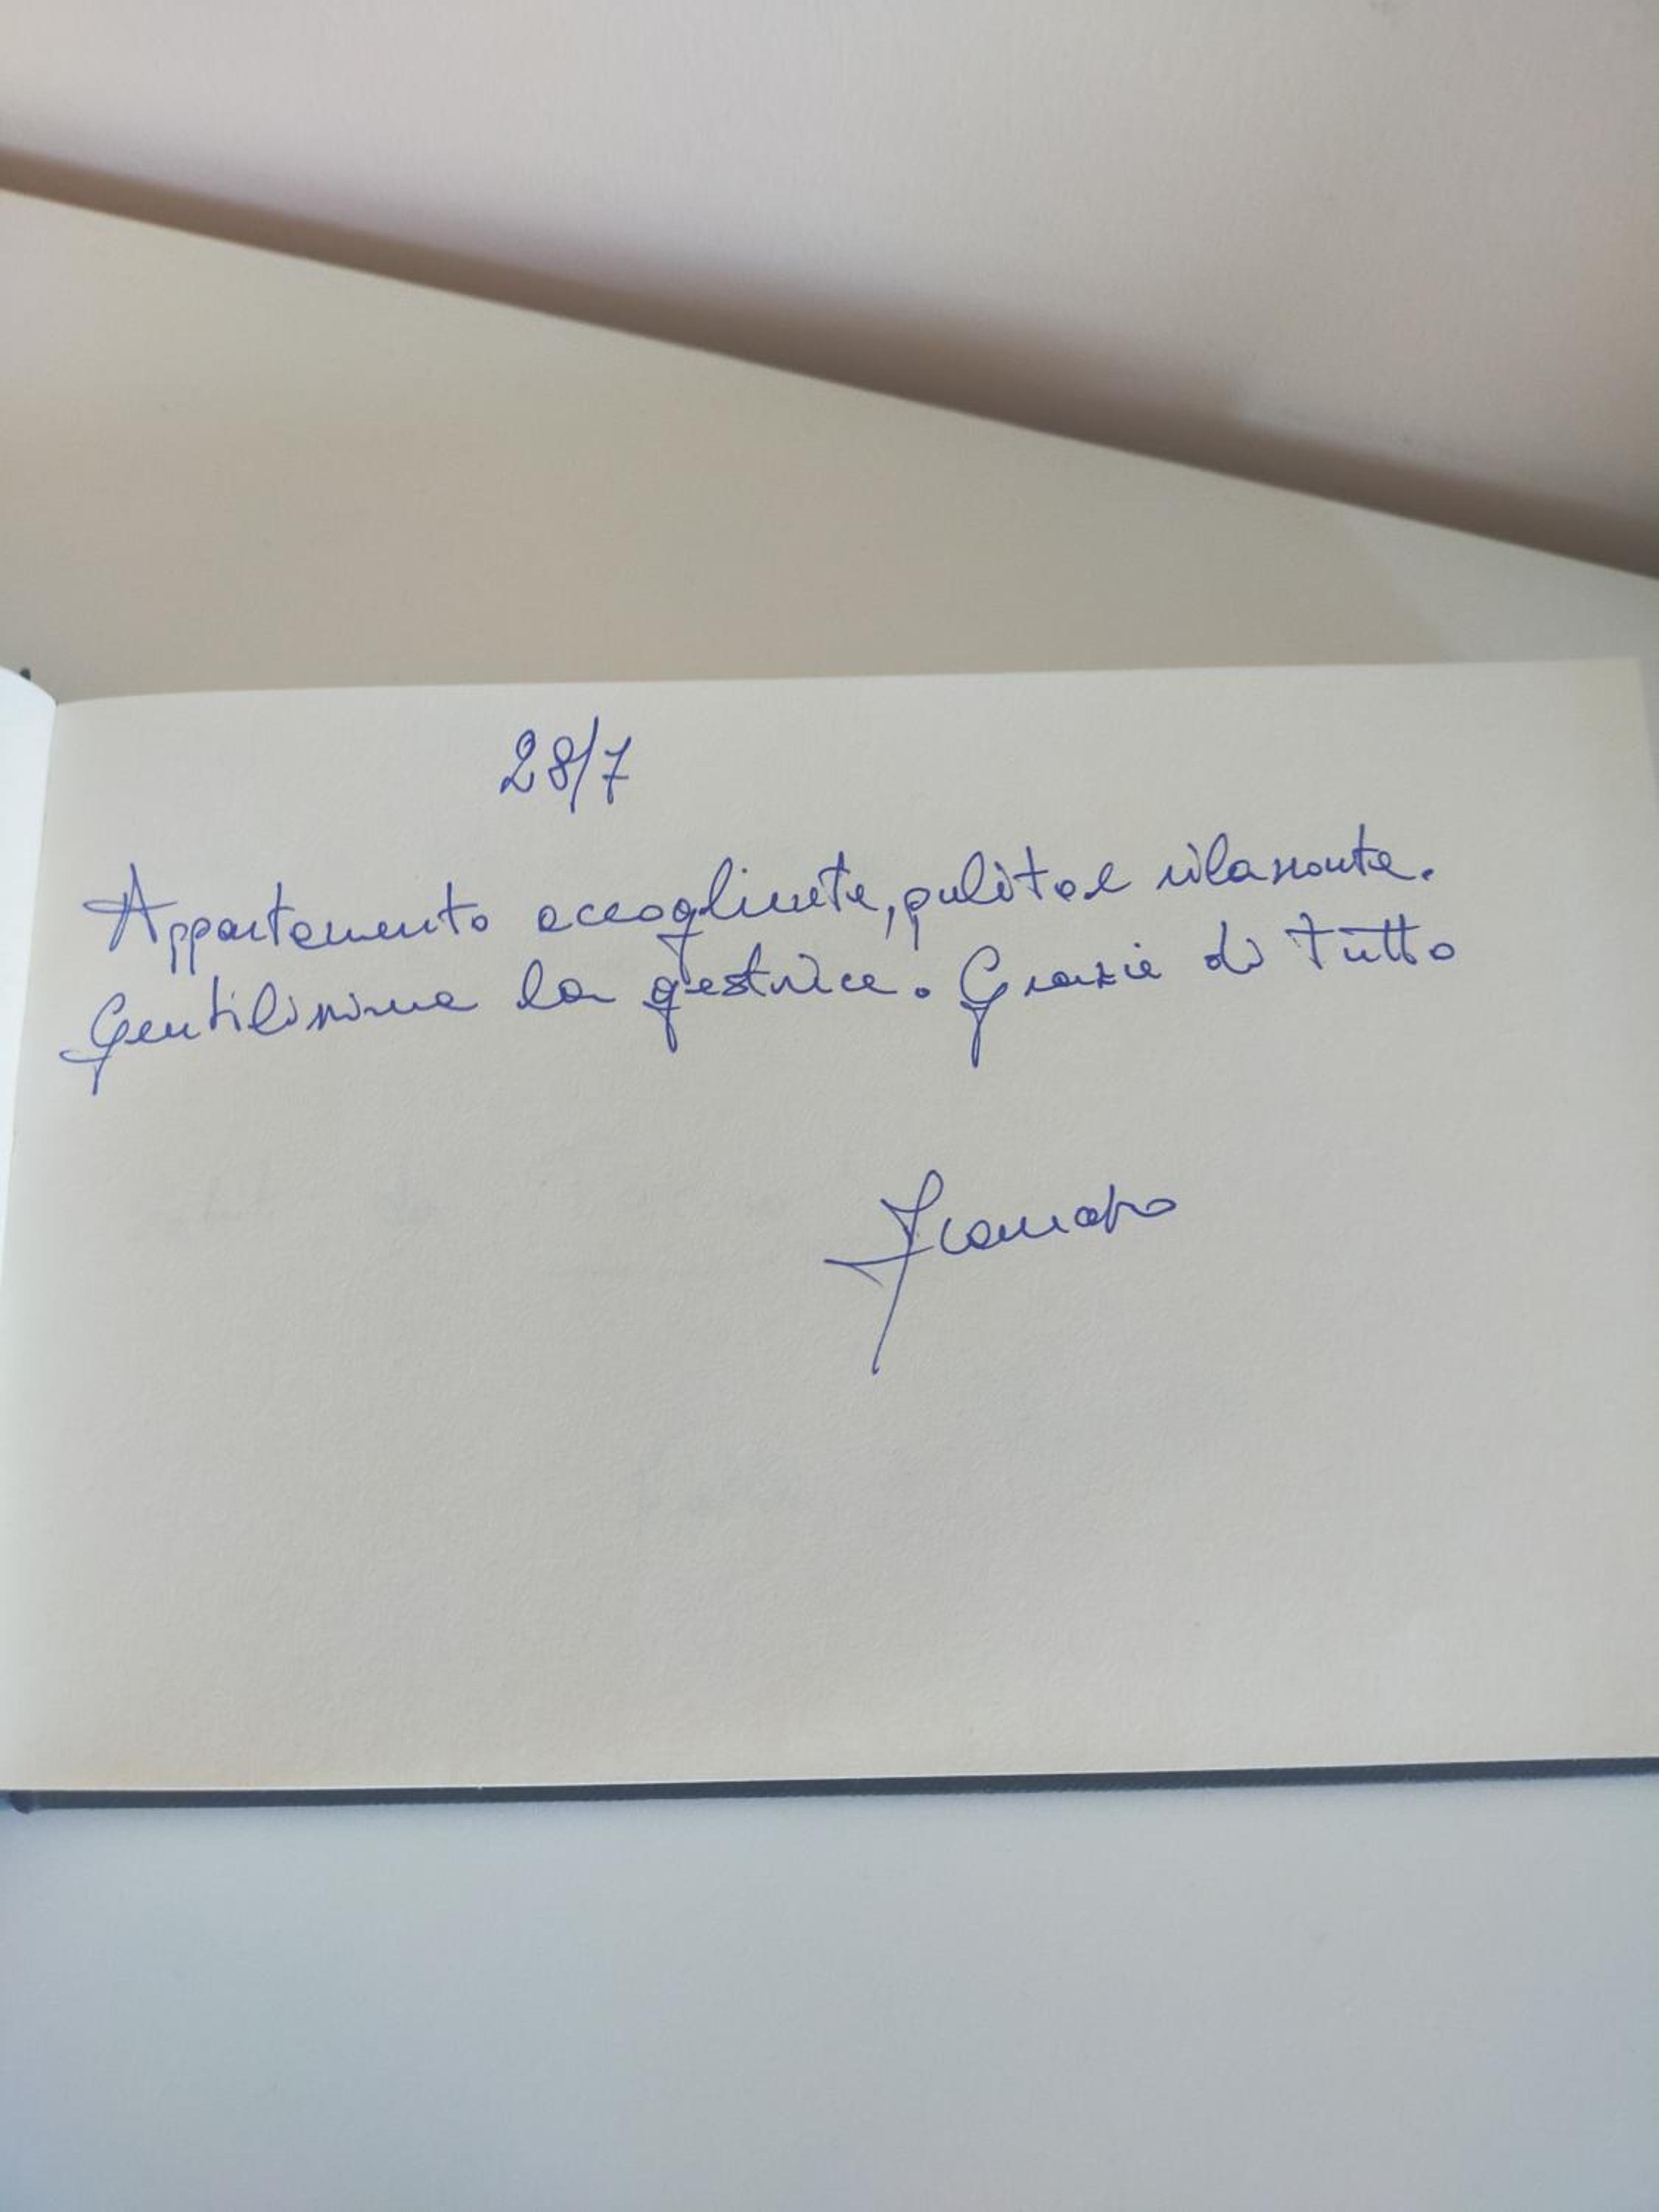 28/7
Appartamento accogliente, pulito e rilassante.
Gentilissima la gestrice. Grazie di tutto